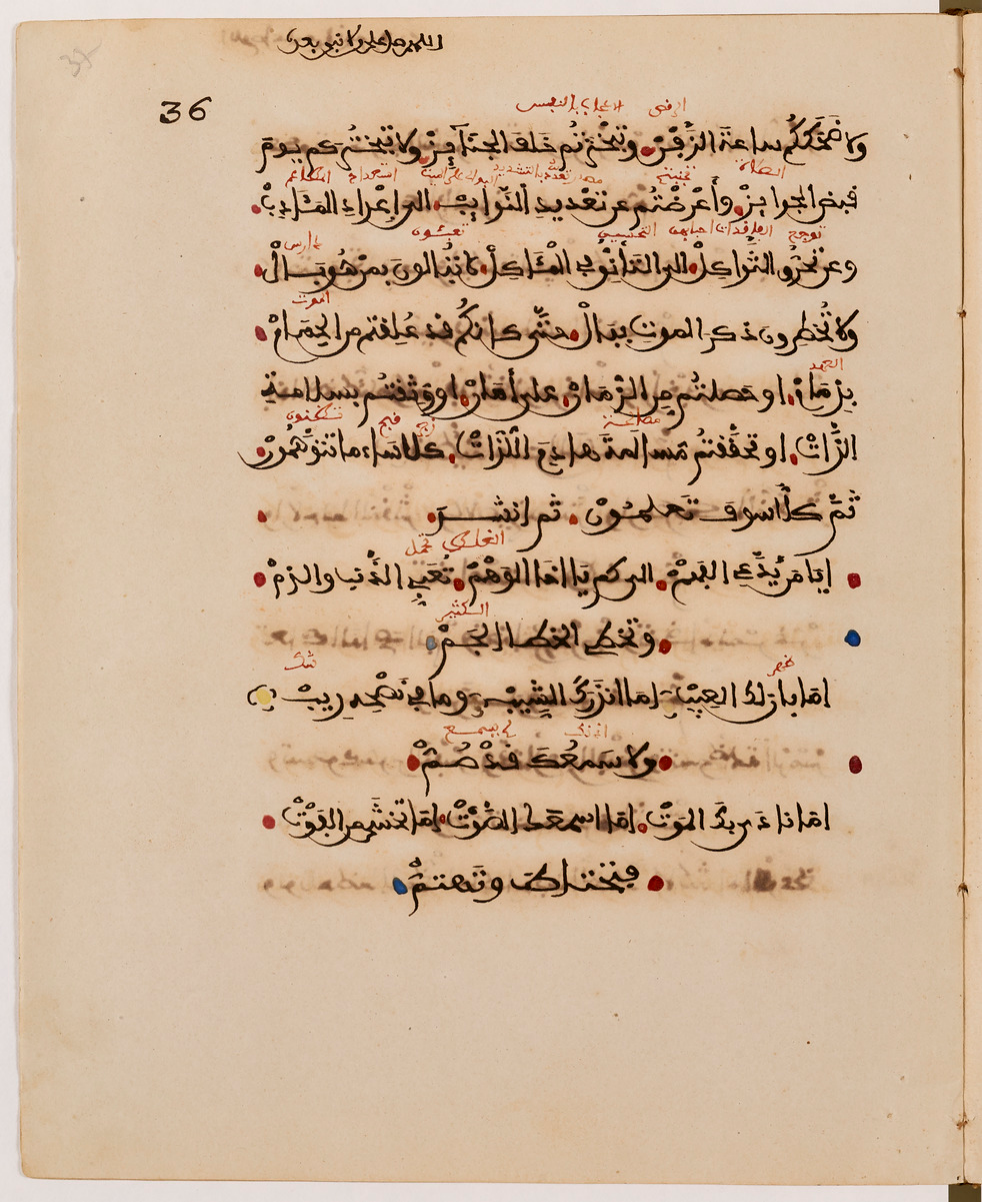 اللهم صل على من لا نبي بعده
36
الرقص الإعجاب بالنفس
ولا ضحككم ساعة الزفن. وتبختركم خلف الجنائز. ولا تبختركم يوم
قبض الجوايز. وأعرضتم عن تعديد النوادب. الى إعداد المئادب.
وعن تحرق الثواكل. الى التأنق في المئاكل. لا تبالون بمن هو بال.
الموت
ولا تخطرون ذكر الموت ببال. حتى كأنكم قد علقتم من الحمام.
العهد
بذمام. او حصلتم من الزمان. على أمان. او وثقتم بسلامة
الذات. او تحققتم مسالمة هادم اللذات. كلا ساء ما تتوهمون.
ثم كلا سوف تعلمون. ثم انشد.
ايا من يدعي الفهم. الى كم يا اخا الوهم. تعبي الذنب والذم.
الكثير
وتخطي الخطا الجم.
ظهر شك
اما بان لك العيب. اما انذرك الشيب. وما في نصحه ريب.
ولا سمعك قد صم.
اما نادى بك الموت. اما اسمعك الصوت. اما تخشى من الفوت.
فتحتاط وتهتم.